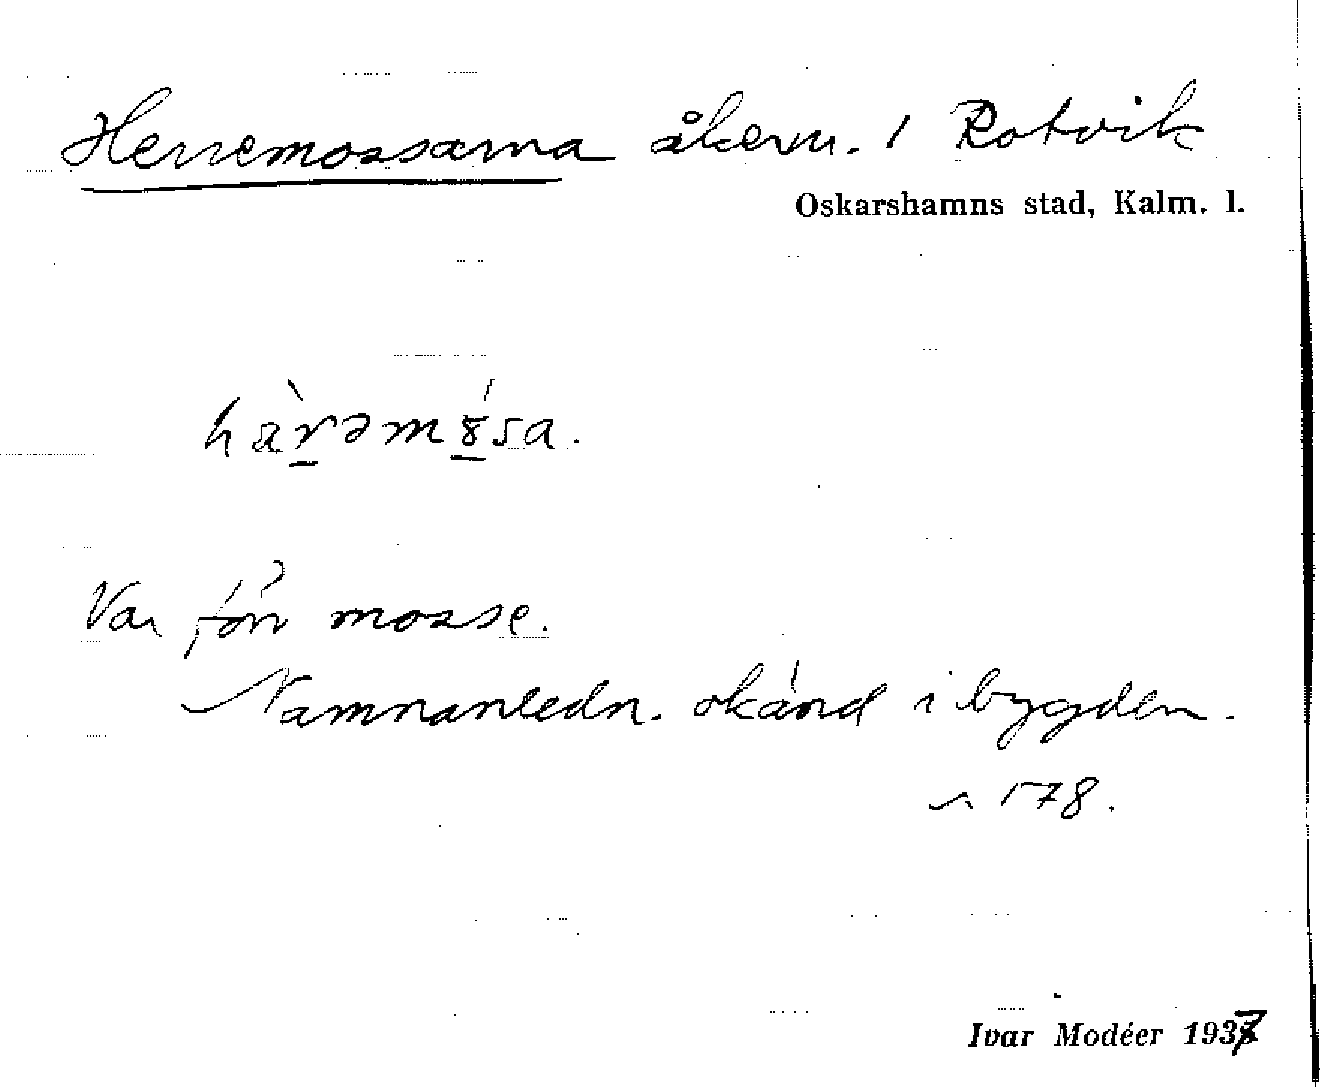 Herremossarna åkerm. / Rotvik
Oskarshamns stad, Kalm. l.
Var förr mosse.
Namnanledn. okänd i bygden.
178.
Ivar Modéer 1937